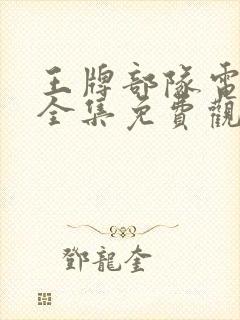 王牌部隊電
全集免費觀
鄧龍奎